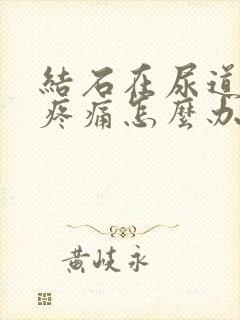 結石在尿道
疼痛怎麼办
黄岐永